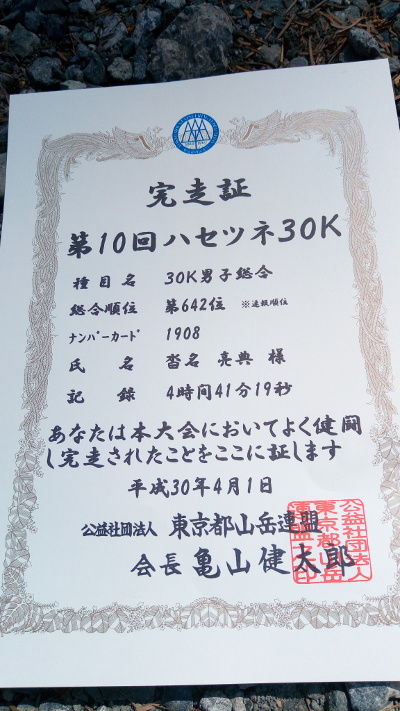 完走証
第10回ハセツネ30K
種目名 30K男子総合
総合順位 第642位 ※速報順位
ﾅﾝﾊﾞｰｶｰﾄﾞ 1908
氏名 沓名 亮典 様
記録 4時間41分19秒
あなたは本大会においてよく健闘
し完走されたことをここに証します
平成30年4月1日
公益社団法人 東京都山岳連盟
会長 亀山健太郎